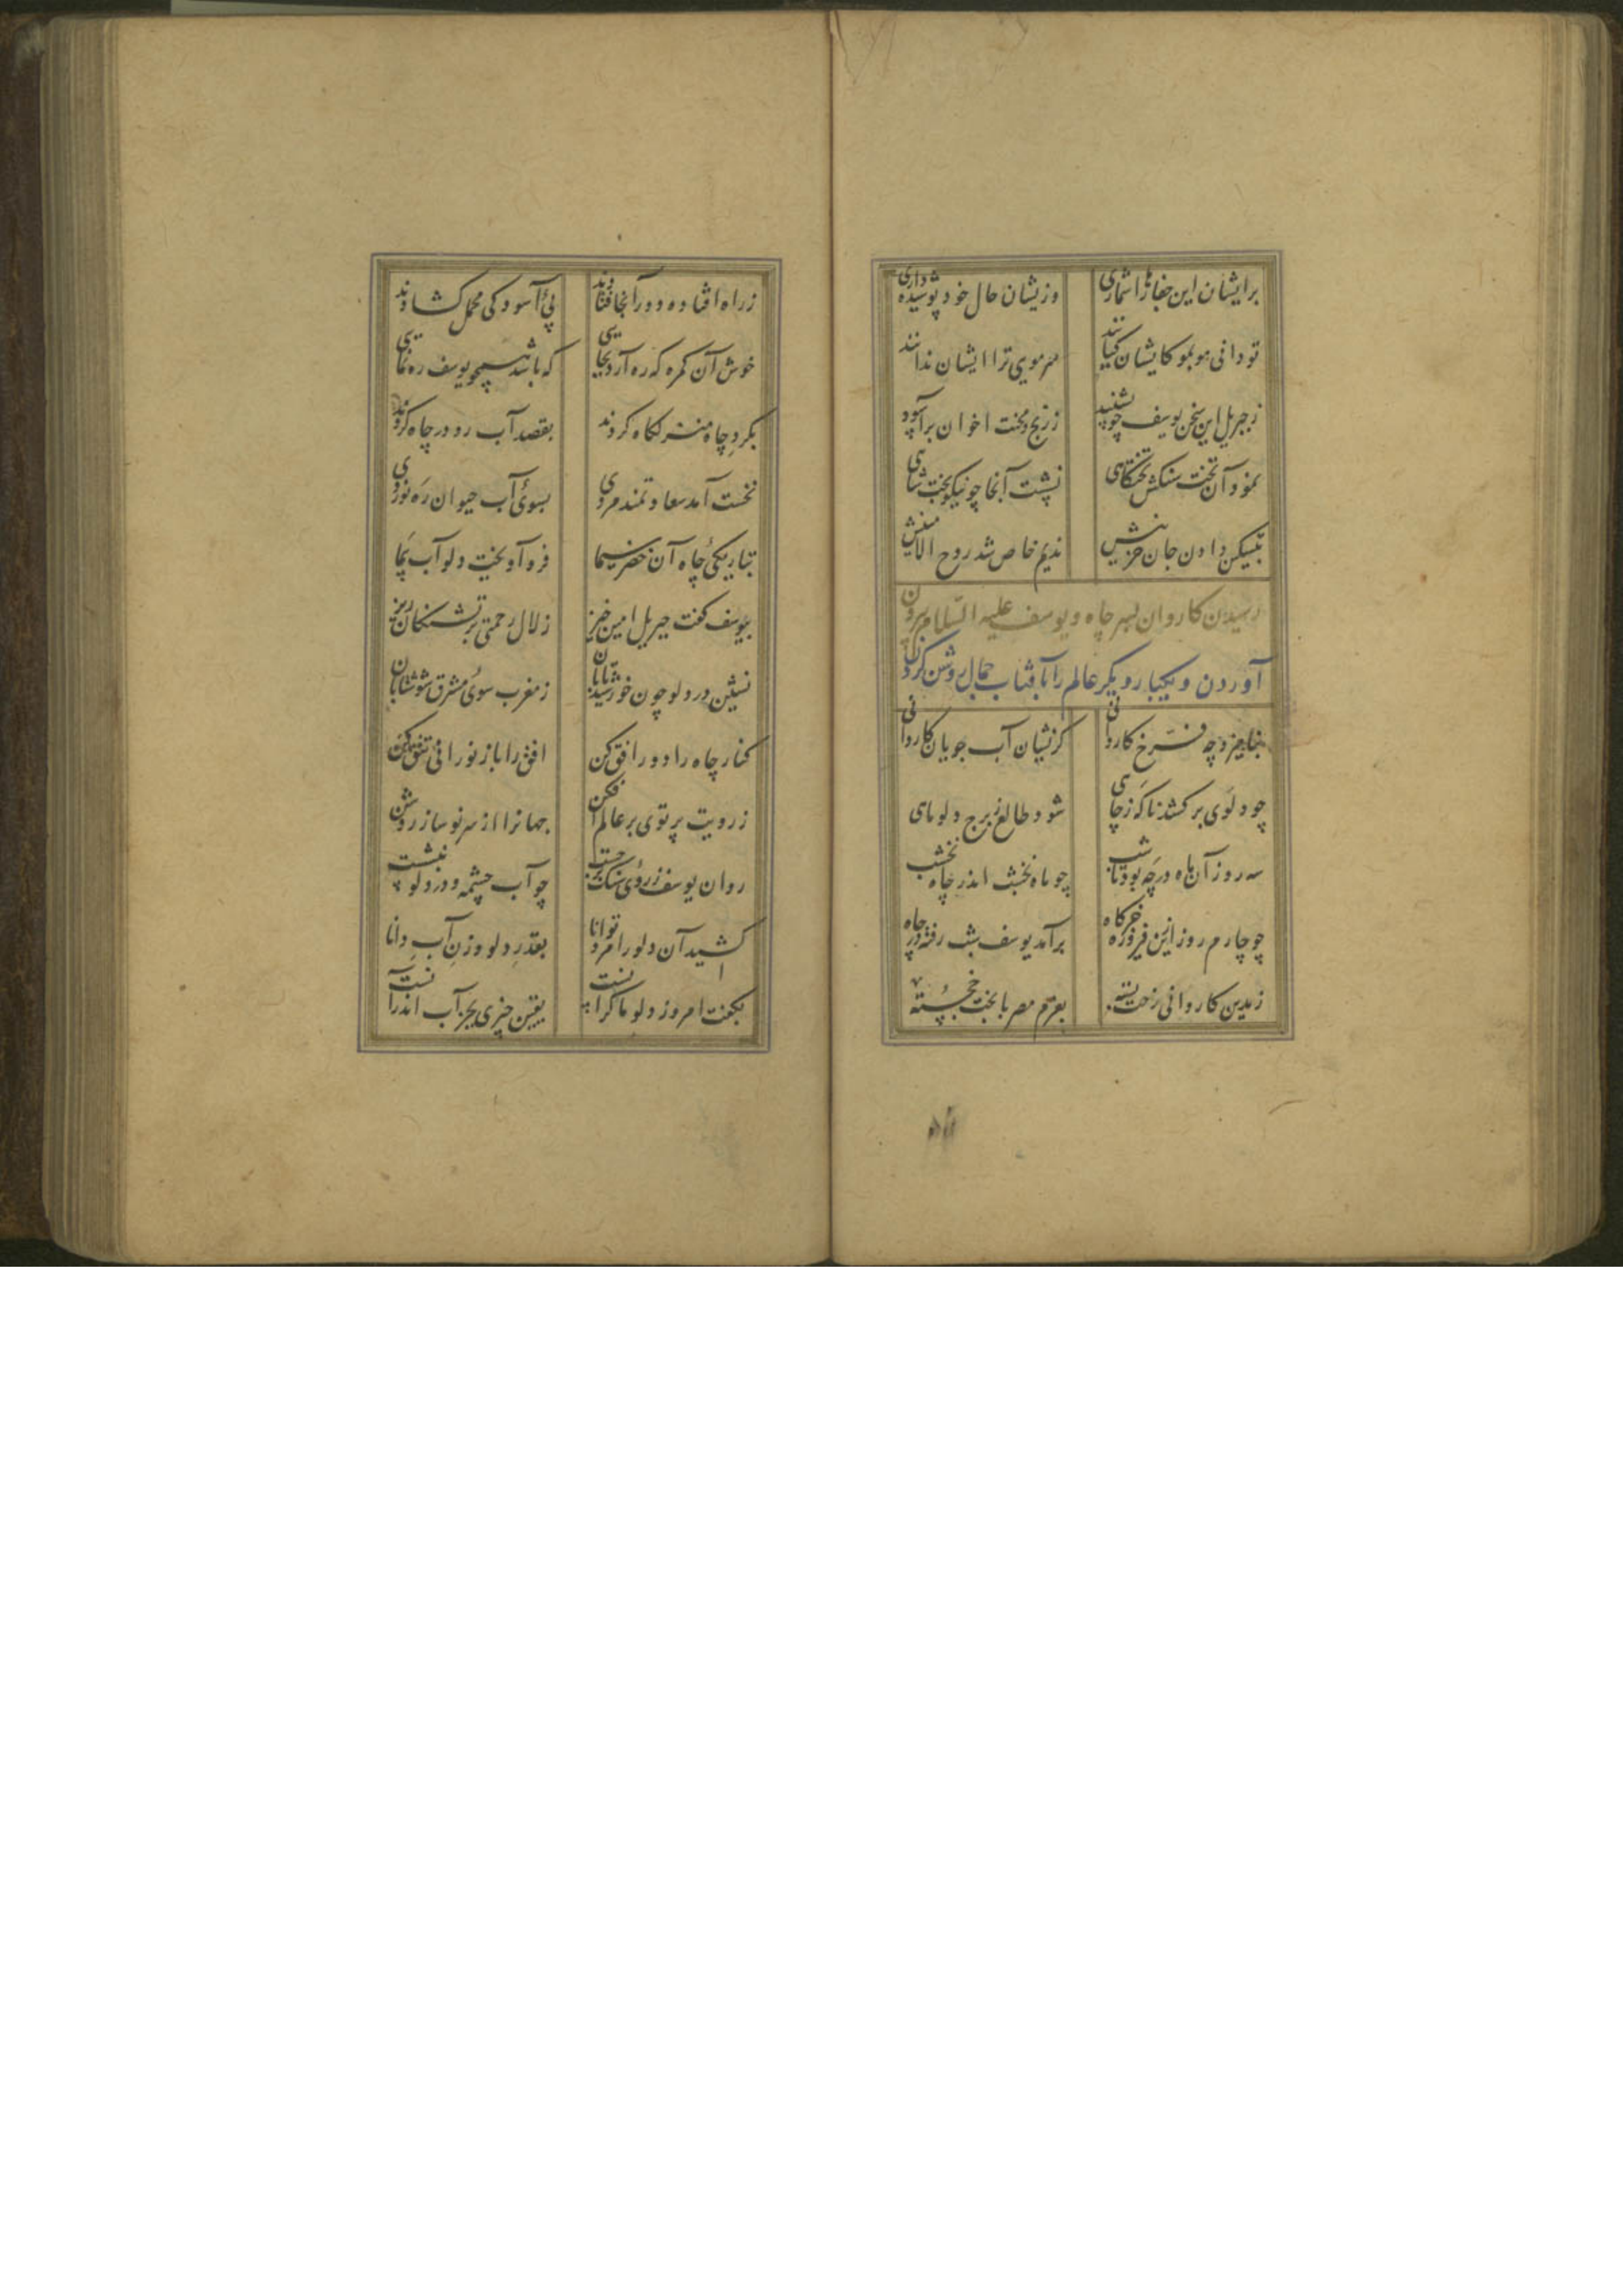 برایشان این جفاها را شماری
وزیشان حال خود پوشیده داری
تو دانی مو بمو کایشان کیانند
سر مویی ترا ایشان ندانند
ز جبریل این سخن یوسف چو بشنید
ز رنج و محنت اخوان برآسود
نمود آن تخت سنگش تختگاهی
نشست آنجا چو نیکوبخت شاهی
بتسکین دادن جان حزینش
ندیم خاص شد روح الامینش
رسیدن کاروان بسر چاه و یوسف علیه السلام برون
آوردن و یکبار دیگر عالم را بآفتاب جمال روشن کردن
بنامیزد چه فرخ کاروانی
کزیشان آب جویان کاروانی
چو دلوی برکشد ناگه ز چاهی
شود طالع ز برج دلو ماهی
سه روز آن ماه در چه بود تا شب
چو ماه نخشب اندر چاه نخشب
چو چارم روز ازین فیروزه خرگاه
برآمد یوسف شب رفته در چاه
ز مدین کاروانی رخت بسته
بعزم مصر با بخت خجسته
ز راه افتاده دور آنجا فتادند
پی آسودگی محمل گشادند
خوش آن گمره که ره آرد بجایی
که باشد همچو یوسف ره نمایی
بگرد چاه منزلگاه کردند
بقصد آب رو در چاه کردند
نخست آمد سعادتمند مردی
بسوی آب حیوان ره نوردی
بتاریکی چاه آن خضر سیما
فرو آویخت دلو آب پیما
بیوسف گفت جبریل امین خیز
زلال رحمتی بر تشنگان ریز
نشین در دلو چون خورشید تابان
ز مغرب سوی مشرق شو شتابان
کنار چاه را دور افق کن
افق را باز نورانی تتق کن
ز رویت پرتوی بر عالم افکن
جهانرا از سر نو ساز روشن
روان یوسف ز روی سنگ برجست
چو آب چشمه و در دلو بنشست
کشید آن دلو را مرد توانا
بقدر دلو و وزن آب دانا
بگفت امروز دلو ما گرانست
یقین چیزی بجز آب اندرآنست